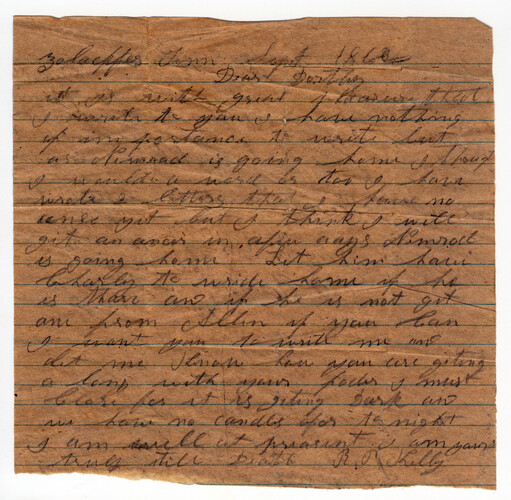 Tenn Sept 186
Dear Brother
it is with great pleasure that
I write to you I have nothing
of importance to write but
as Nimrod is going home I thout
I would a word or too I have
wrote 2 letters that I have no
ancer yet but I think I will
git an ancer in a few days Nimrod
is going home Let him have
Charley to ride home if he
is thare an if he is not git
one from Allin if you Can
I want you to write me an
let me Know how you are giting
a long with your foder I must
Close for it is giting Dark an
we have no candles for to night
I am well at preasant I am yours
truly till Death R. P. Kelly